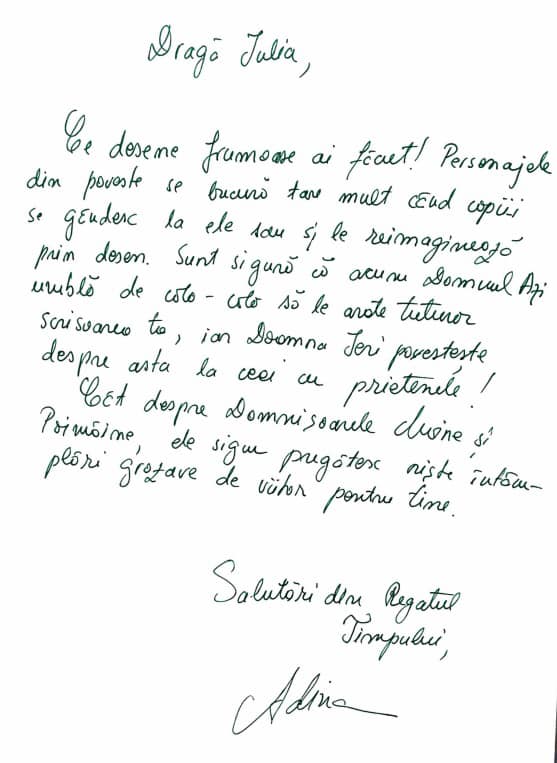 Dragă Iulia,
Ce desene frumoase ai făcut! Personajele
din poveste se bucură tare mult când copiii
se gândesc la ele sau și le reimaginează
prin desen. Sunt sigură că acum Domnul Azi
umblă de colo-colo să le arate tuturor
scrisoarea ta, iar Doamna Ieri povestește
despre asta la ceai cu prietenele!
Cât despre Domnișoarele Mâine și
Poimâine, ele sigur pregătesc niște întâm-
plări grozave de viitor pentru tine.
Salutări din Regatul
Timpului,
Adina